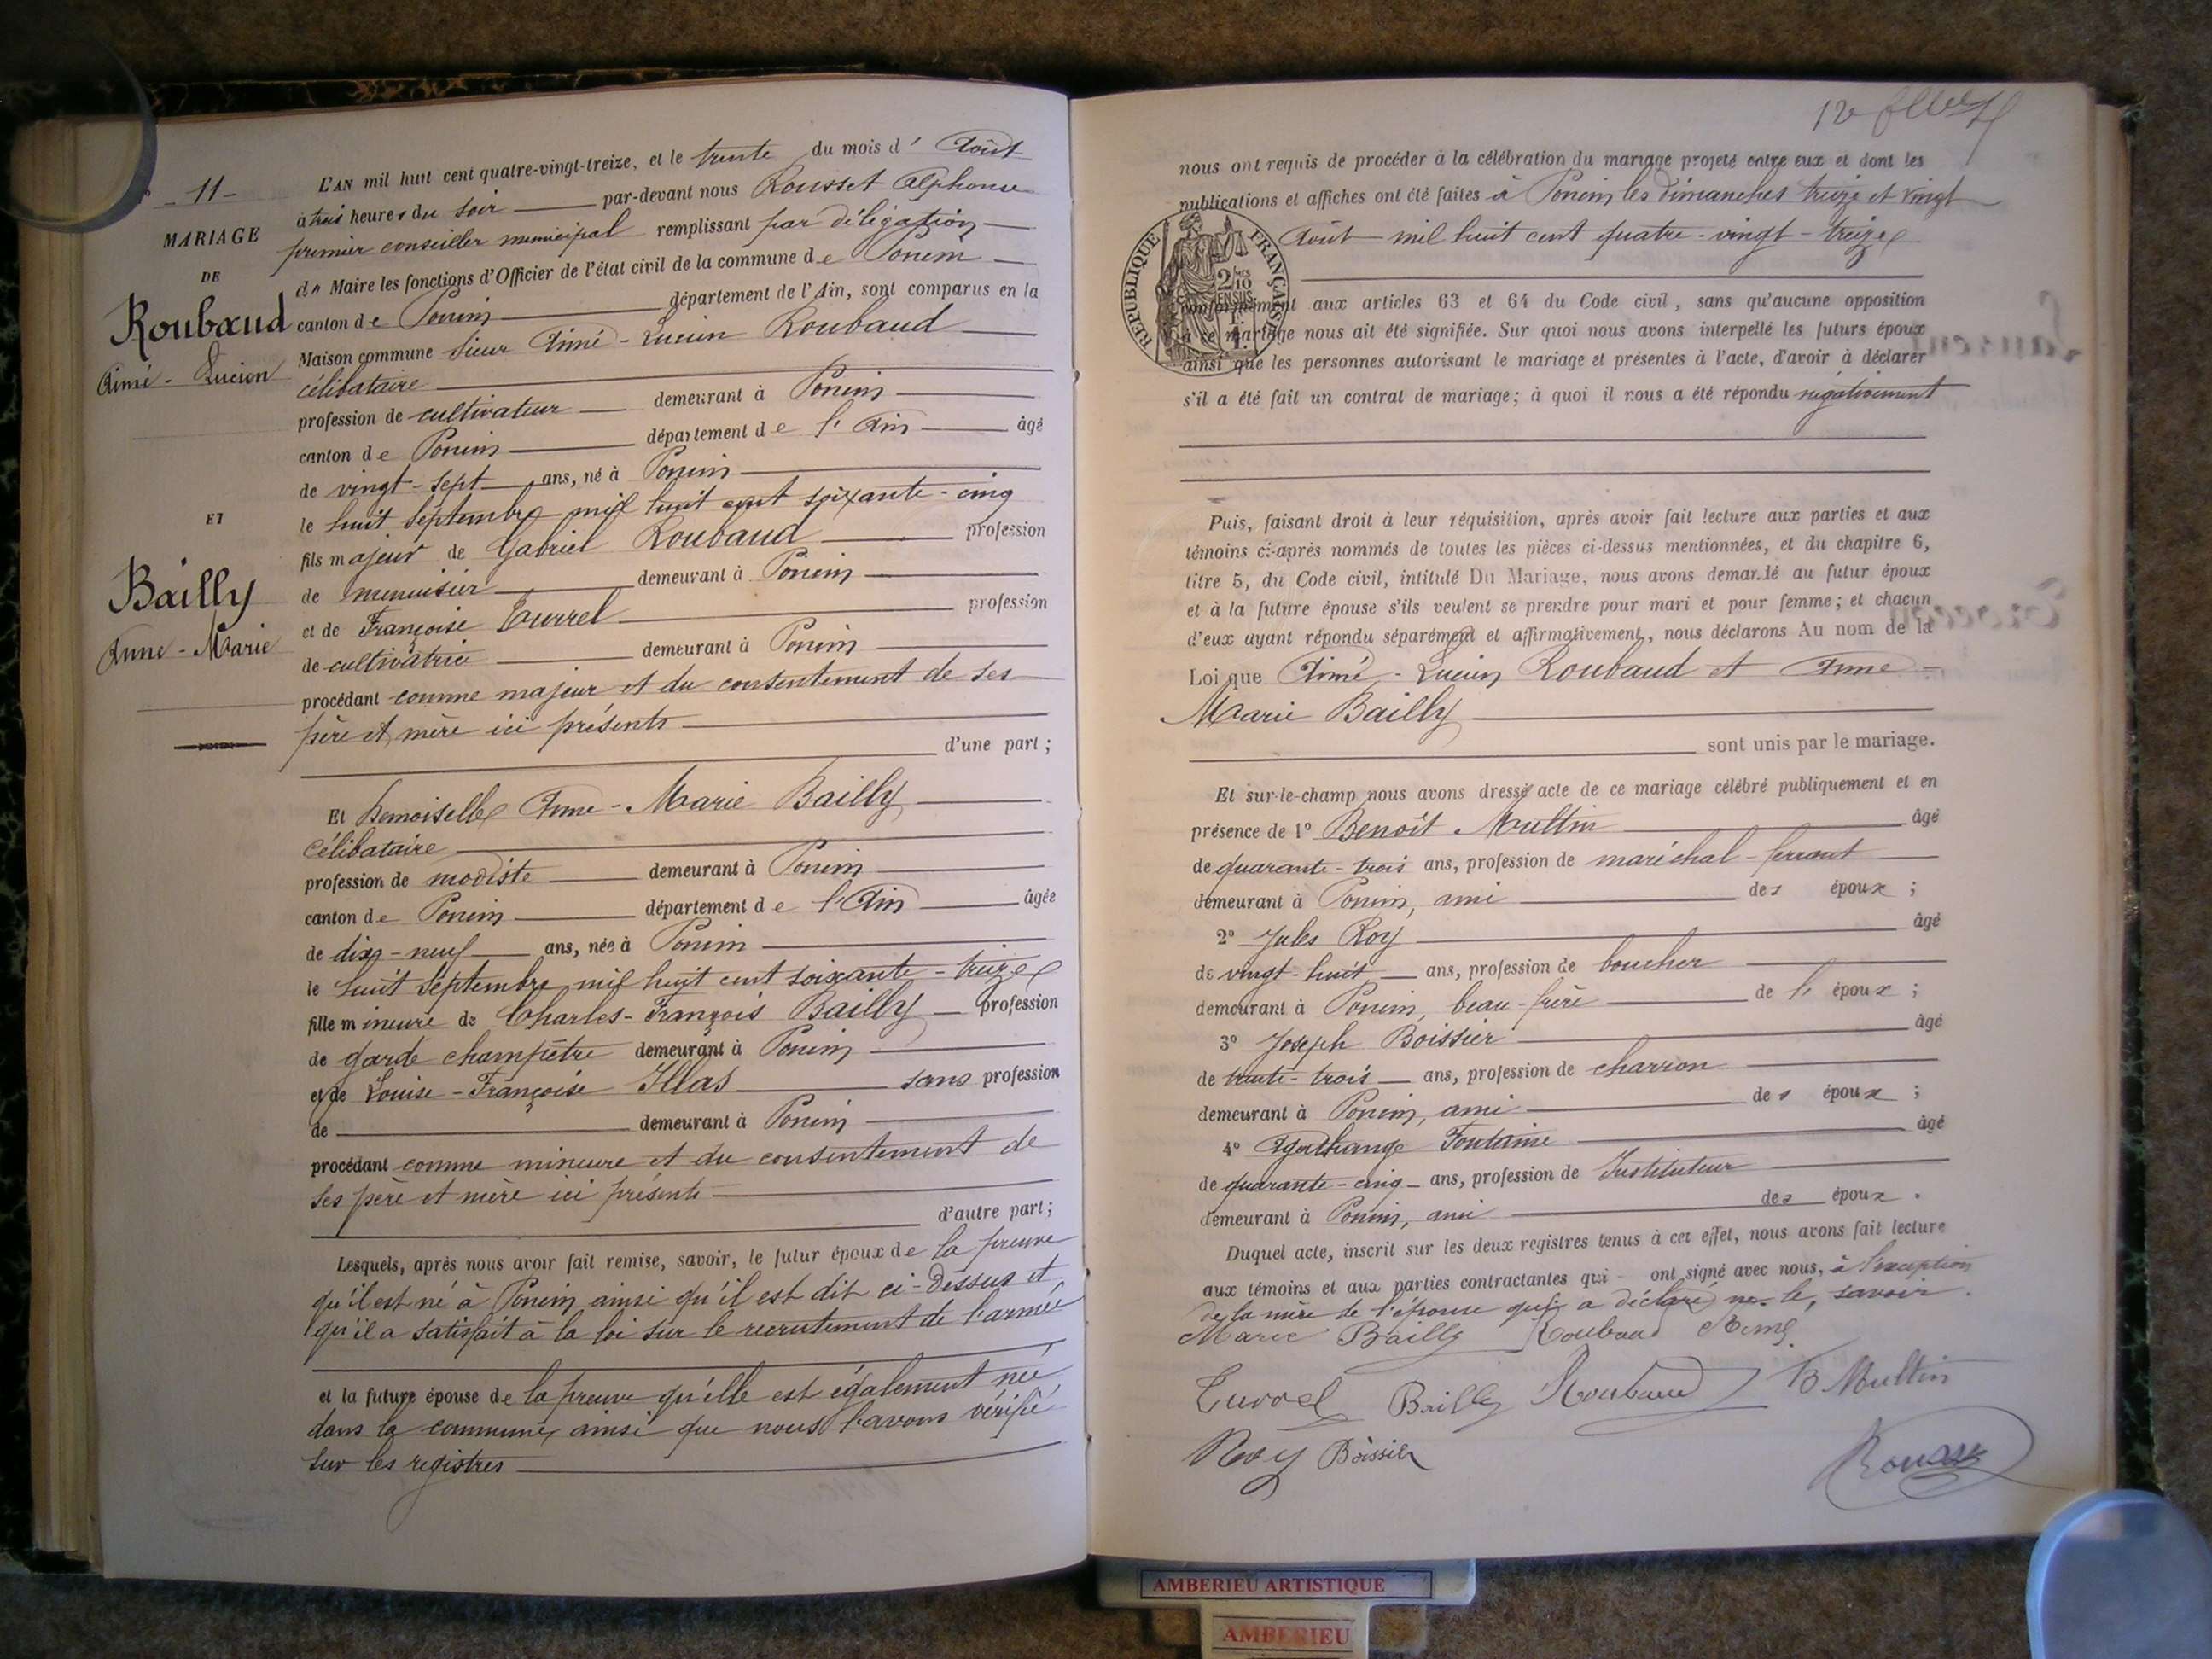 - 11 -
MARIAGE
DE
Roubaud
Aimé - Lucien
ET
Bailly
Anne - Marie
L'AN mil huit cent quatre-vingt-treize, et le trente du mois d' Août
à trois heures du soir par-devant nous Rousset Alphonse
premier conseiller municipal remplissant par délégation
du Maire les fonctions d'Officier de l'état civil de la commune de Poncin
canton de Poncin département de l'Ain, sont comparus en la
Maison commune sieur Aimé - Lucien Roubaud
célibataire
profession de cultivateur demeurant à Poncin
canton de Poncin département de l'Ain âgé
de vingt-sept ans, né à Poncin
le huit Septembre mil huit cent soixante-cinq
fils majeur de Gabriel Roubaud profession
de menuisier demeurant à Poncin
et de Françoise Turrel profession
de cultivatrice demeurant à Poncin
procédant comme majeur et du consentement de ses
père et mère ici présents
d'une part ;
Et Demoiselle Anne - Marie Bailly
célibataire
profession de modiste demeurant à Poncin
canton de Poncin département de l'Ain âgée
de dix-neuf ans, née à Poncin
le huit Septembre mil huit cent soixante-treize
fille mineure de Charles-François Bailly profession
de garde champêtre demeurant à Poncin
et de Louise - Françoise Illas sans profession
de demeurant à Poncin
procédant comme mineure et du consentement de
ses père et mère ici présents
d'autre part ;
Lesquels, après nous avoir fait remise, savoir, le futur époux de la preuve
qu'il est né à Poncin ainsi qu'il est dit ci-dessus et
qu'il a satisfait à la loi sur le recrutement de l'armée
et la future épouse de la preuve qu'elle est également née
dans la commune, ainsi que nous l'avons vérifié
sur les registres
nous ont requis de procéder à la célébration du mariage projeté entre eux et dont les
publications et affiches ont été faites à Poncin les dimanches treize et vingt
Août mil huit cent quatre-vingt-treize
RÉPUBLIQUE FRANÇAISE
conformément aux articles 63 et 64 du Code civil, sans qu'aucune opposition
à ce mariage nous ait été signifiée. Sur quoi nous avons interpellé les futurs époux
ainsi que les personnes autorisant le mariage et présentes à l'acte, d'avoir à déclarer
s'il a été fait un contrat de mariage ; à quoi il nous a été répondu négativement
Puis, faisant droit à leur réquisition, après avoir fait lecture aux parties et aux
témoins ci-après nommés de toutes les pièces ci-dessus mentionnées, et du chapitre 6,
titre 5, du Code civil, intitulé Du Mariage, nous avons demandé au futur époux
et à la future épouse s'ils veulent se prendre pour mari et pour femme ; et chacun
d'eux ayant répondu séparément et affirmativement, nous déclarons Au nom de la
Loi que Aimé - Lucien Roubaud et Anne -
Marie Bailly
sont unis par le mariage.
Et sur-le-champ nous avons dressé acte de ce mariage célébré publiquement et en
présence de 1° Benoît Multin âgé
de quarante-trois ans, profession de maréchal-ferrant
demeurant à Poncin, ami des époux ;
2° Jules Roy âgé
de vingt-huit ans, profession de boucher
demeurant à Poncin, beau-frère de l' époux ;
3° Joseph Boissier âgé
de trente-trois ans, profession de charron
demeurant à Poncin, ami des époux ;
4° Agathange Fontaine âgé
de quarante-cinq ans, profession de Instituteur
demeurant à Poncin, ami des époux.
Duquel acte, inscrit sur les deux registres tenus à cet effet, nous avons fait lecture
aux témoins et aux parties contractantes qui ont signé avec nous, à l'exception
de la mère de l'épouse qui a déclaré ne le savoir.
Marie Bailly Roubaud Aimé
Turrel Bailly Roubaud B Multin
Roy Boissier
Rousset
AMBERIEU ARTISTIQUE
AMBERIEU